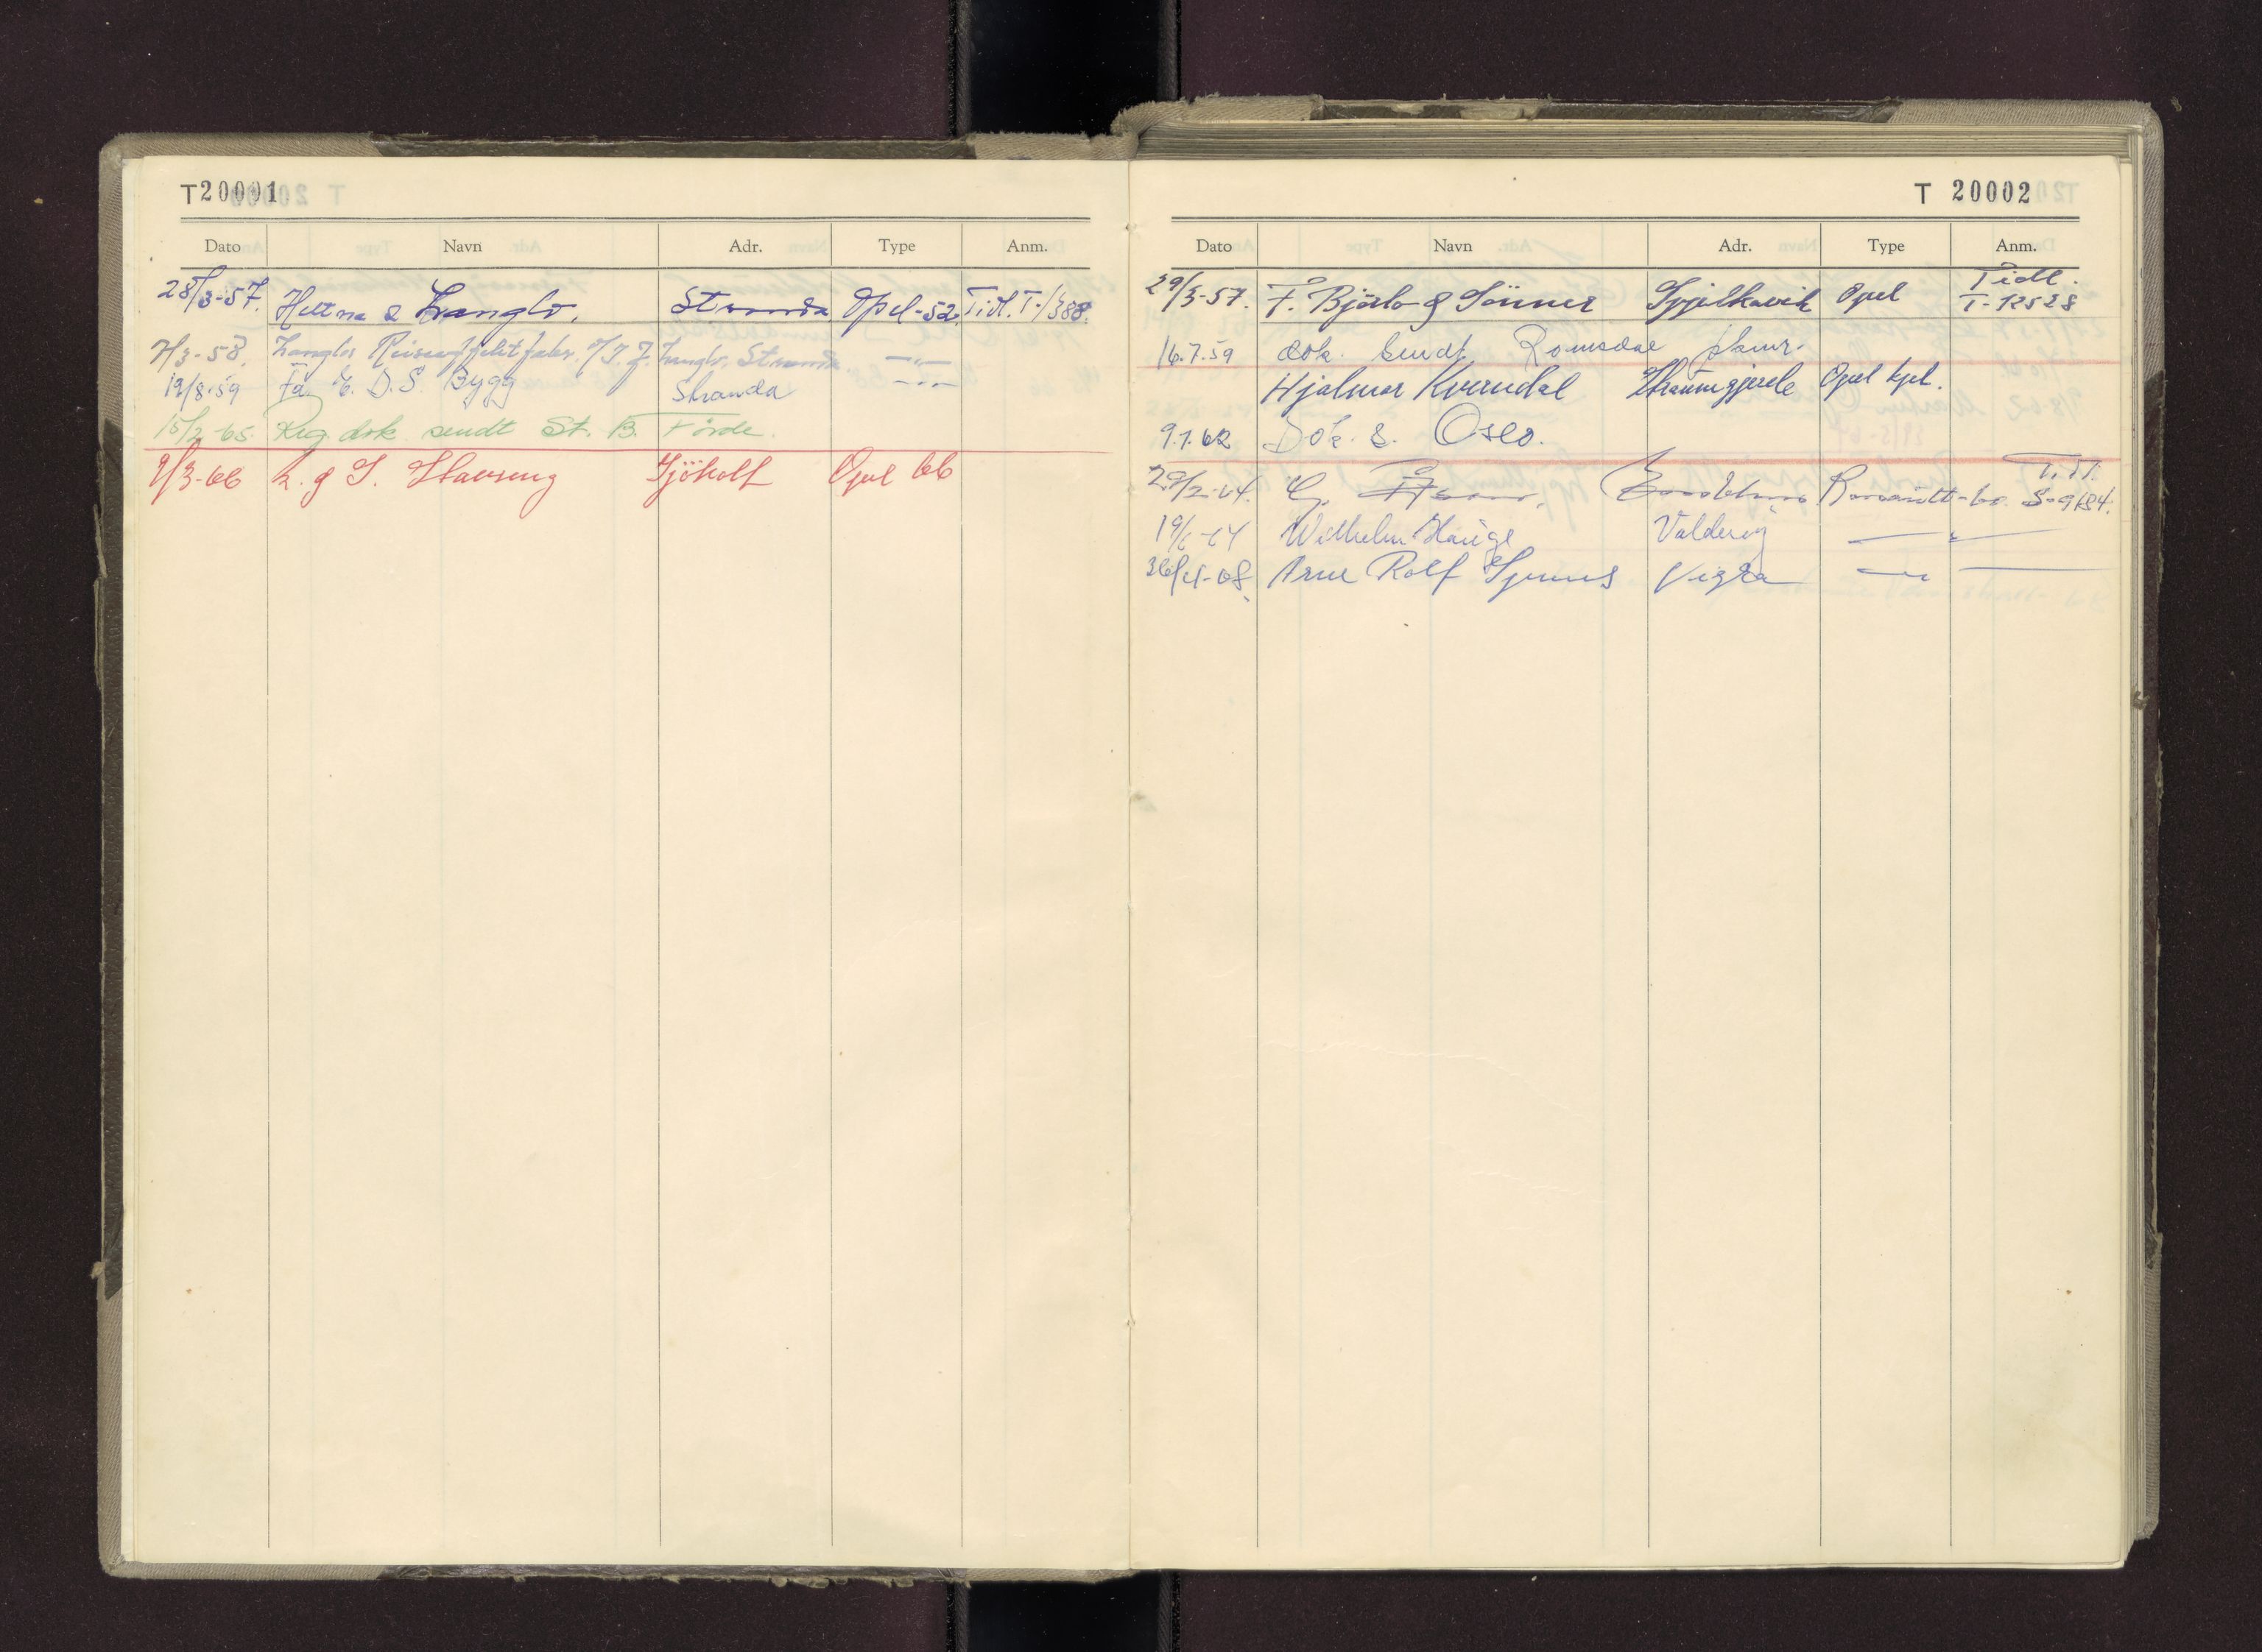 T 20001
Dato Navn Adr. Type Anm.
28/3-57. Hettna & Langlo. Stranda Opel-52. Tidl. T-1388.
7/3-58. Langlos Reiseeffektfabr. Langlo, Stranda. —"—
19/8-59 Fa. E. D. S Bygg Stranda —"—
15/2-65. Reg. dok sendt St. B. Förde.
9/3-66 L. g S. Stavseng Sjöholt Opel 66
T 20002
Dato Navn Adr. Type Anm.
29/3-57. F. Björlo & Sönner Spjelkavik Opel Tidl. T-12528
16.7.59 dok. sendt Romsdal
Hjalmar Kverndal Straumgjerde Opel kpl.
9.1.62 Dok. s. Oslo.
29/2-64. Tidl. S-9684.
19/6-64 Wilhelm Hauge Valderöy —"—
Arne Rolf Vigra —"—